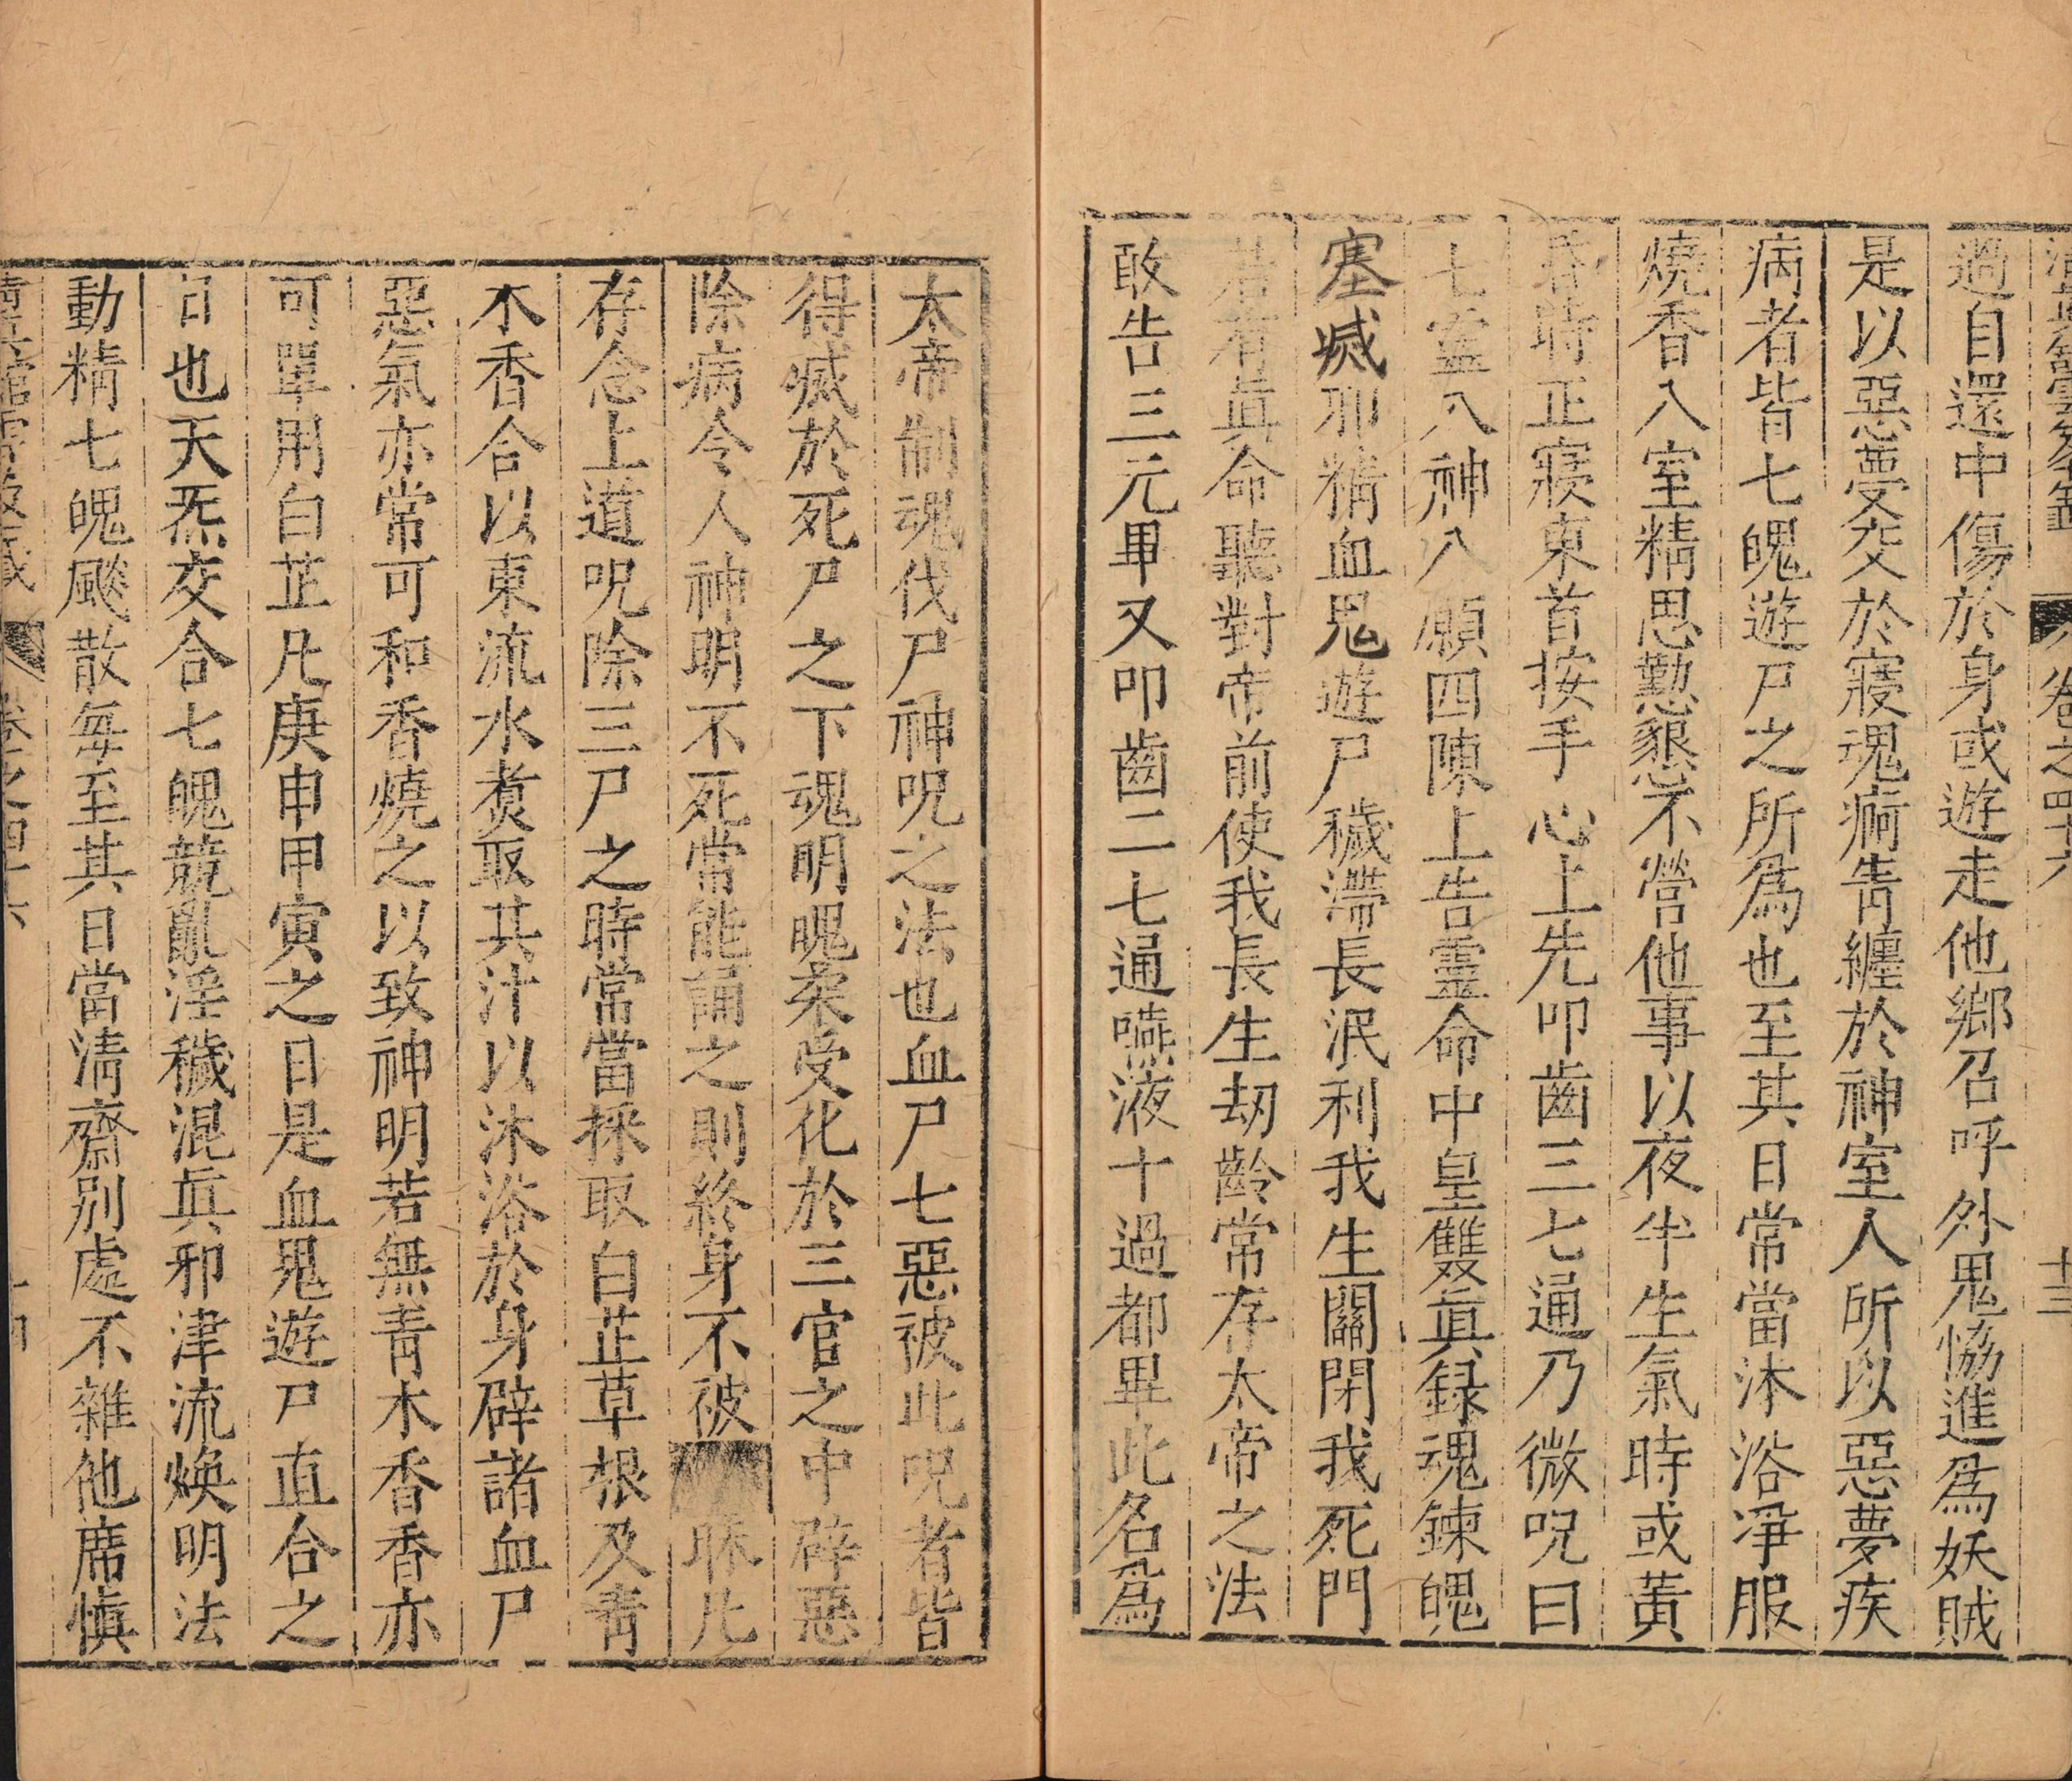 卷之四十六 十三
過自還中傷於身或遊走他鄉召呼外鬼恊進爲妖賊
是以惡夢受交於寢魂痾眚纏於神室人所以惡夢疾
病者皆七魄遊尸之所爲也至其日常當沐浴淨服
燒香入室精思懃懇不營他事以夜半生氣時或黃
昏時正寢東首按手心上先叩齒三七通乃微呪曰
七靈八神八願四陳上告靈命中皇雙眞録魂鍊魄
塞滅邪精血鬼遊尸穢滯長泯利我生關閉我死門
若有眞命聽對帝前使我長生劫齡常存太帝之法
敢告三元畢又叩齒二七通嚥液十過都畢此名爲
太帝制魂伐尸神呪之法也血尸七惡被此呪者皆
得滅於死尸之下魂明魄柔受化於三官之中辟惡
除病令人神明不死常能誦之則終身不被
存念上道呪除三尸之時常當採取白芷草根及靑
木香合以東流水煑取其汁以沐浴於身辟諸血尸
惡氣亦常可和香燒之以致神明若無靑木香香亦
可單用白芷凡庚申甲寅之日是血鬼遊尸直合之
日也天炁交合七魄競亂淫穢混眞邪津流煥明法
動精七魄飈散每至其日當淸齋別處不雜他席愼
卷之四十六 十四